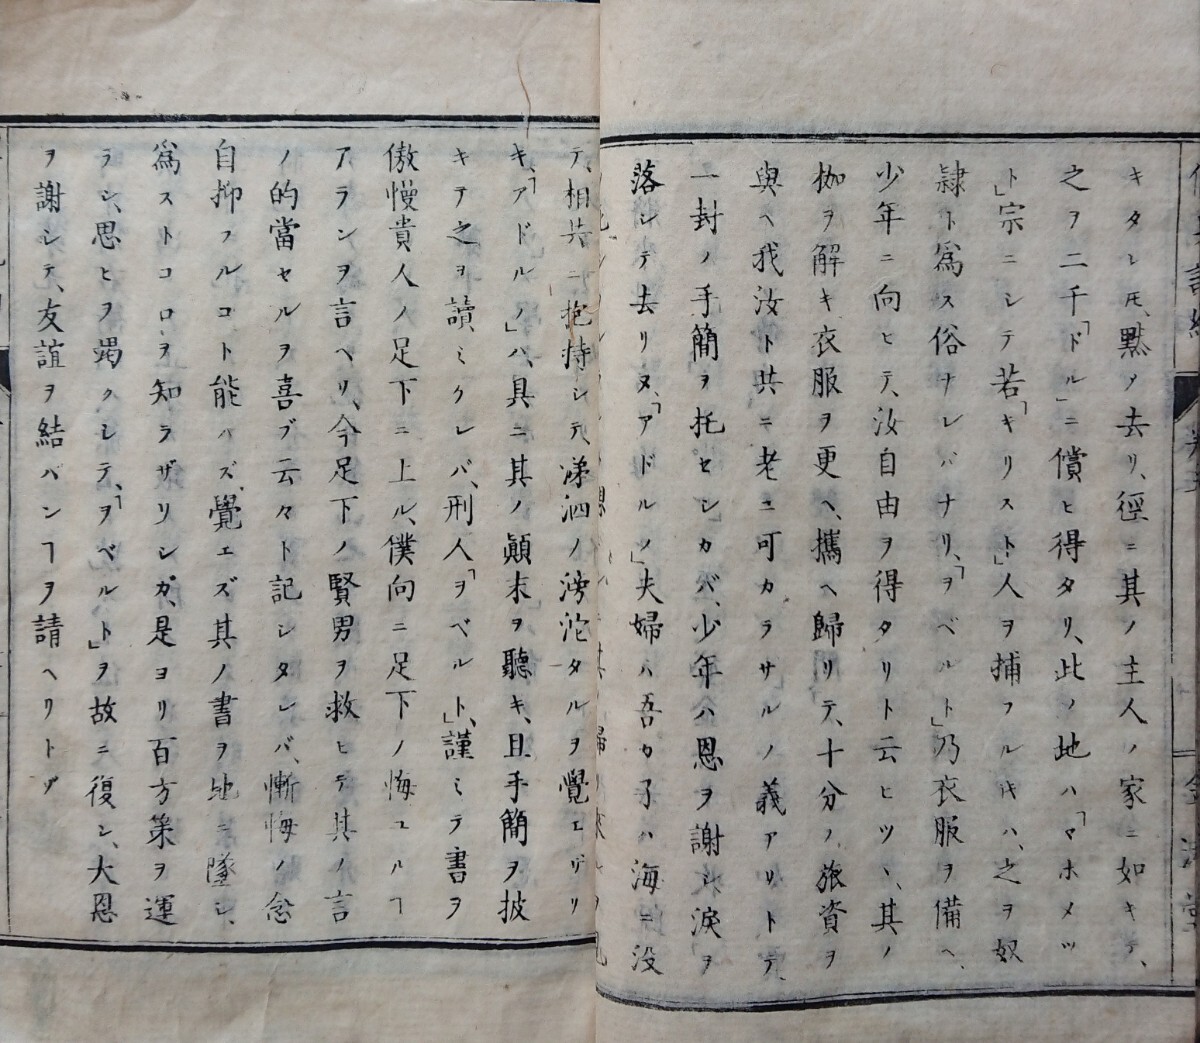 キタレ𪜈、黙〆去リ、徑ニ其ノ主人ノ家ニ如キテ、
之ヲ二千「ドル」ニ償ヒ得タリ、此ノ地ハ「マホメツ
ト」宗ニシテ若「キリスト」人ヲ捕フル𬼀ハ、之ヲ奴
隷ト爲ス俗ナレバナリ、「ヲベルト」乃衣服ヲ備ヘ、
少年ニ向ヒテ、汝自由ヲ得タリト云ヒツヽ、其ノ
枷ヲ解キ衣服ヲ更ヘ、攜ヘ歸リテ、十分ノ旅資ヲ
與ヘ我汝ト共ニ老ユ可カラサルノ義アリトテ、
一封ノ手簡ヲ托セシカバ、少年ハ恩ヲ謝シ、涙ヲ
落シテ去リヌ、「アドルノ」夫婦ハ吾カ子ハ海ニ没
テ、相共ニ抱持シテ、涕泗ノ滂沱タルヲ覺エザリ
キ、「アドルノ」ハ、具ニ其ノ顛末ヲ聽キ、且手簡ヲ披
キテ之ヲ讀ミクレバ、刑人「ヲベルト」、謹ミテ書ヲ
傲慢貴人ノ足下ニ上ル、僕向ニ足下ノ悔ユルヿ
アランヲ言ヘリ、今足下ノ賢男ヲ救ヒテ其ノ言
ノ的當セルヲ喜ブ云々ト記シタレバ、慚悔ノ念
自抑フルコト能ハズ、覺エズ其ノ書ヲ地ニ墜シ、
爲ストコロヲ知ラザリシガ、是ヨリ百方策ヲ運
ラシ、思ヒヲ竭クシテ、「ヲベルト」ヲ故ニ復シ、大恩
ヲ謝シテ、友誼ヲ結バンヿヲ請ヘリトゾ